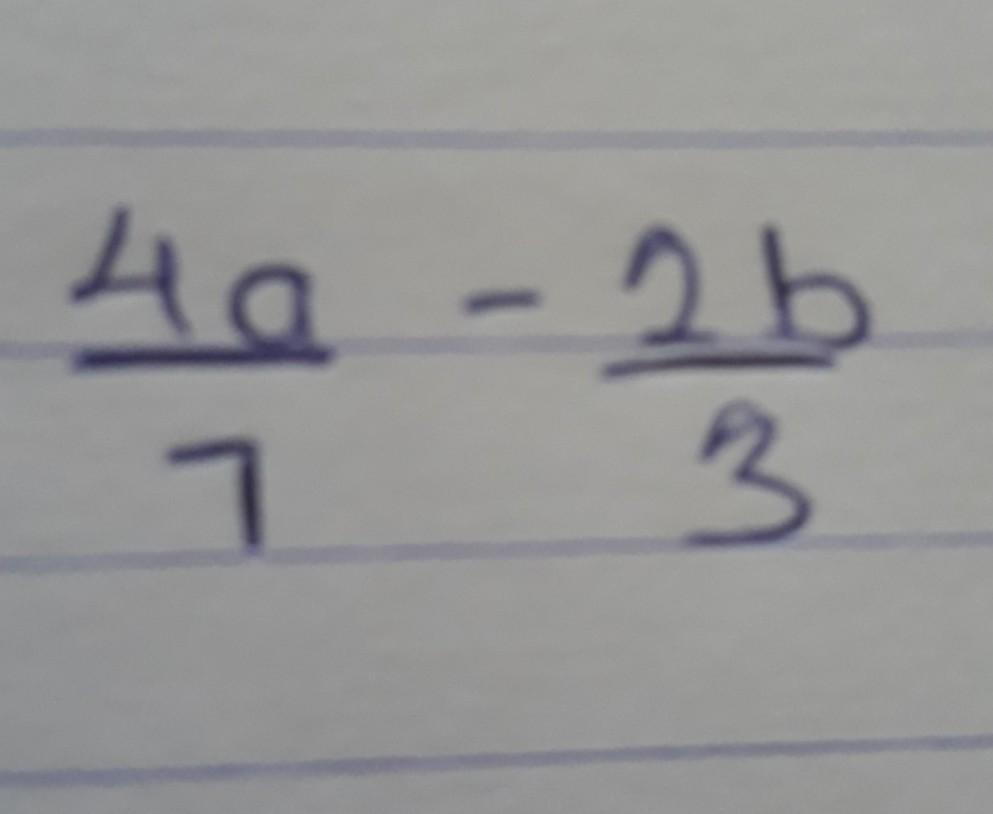 4a/7 - 2b/3